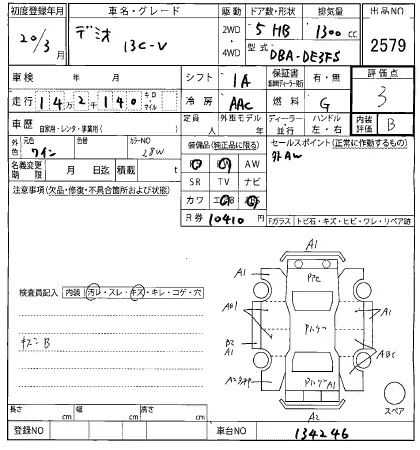 初度登録年月 車名・グレード 駆動 ドア数・形状 排気量 出品NO
20/3月 デミオ 13C-V 2WD・4WD 5 HB 1300cc 2579
型式 DBA-DE3FS
車検 年 月 シフト 1A 保証書 有・無 評価点
走行 14万2千140 キロ・マイル 冷房 AAC 燃料 G 3
車歴 自家用・レンタ・事業用( ) 定員 人 外車モデル 年 ディーラー・並行 ハンドル 左・右 内装評価 B
外色 元色 ワイン 色替 カラーNO 28W 装備品(純正品に限る) セールスポイント(正常に作動するもの)
AW 社外AW
名義変更期限 月 日迄 積載 t SR TV ナビ
注意事項(欠品・修復・不具合箇所および状態) カワ
R券 10410円
Fガラス トビ石・キズ・ヒビ・ワレ・リペア跡
A1
A1 A1
検査員記入 内装 汚レ・スレ・キズ・キレ・コゲ・穴
キズ B
A1
B2
A1
A2
スペア
長さ cm 幅 cm 高さ cm
登録NO 車台NO 134246